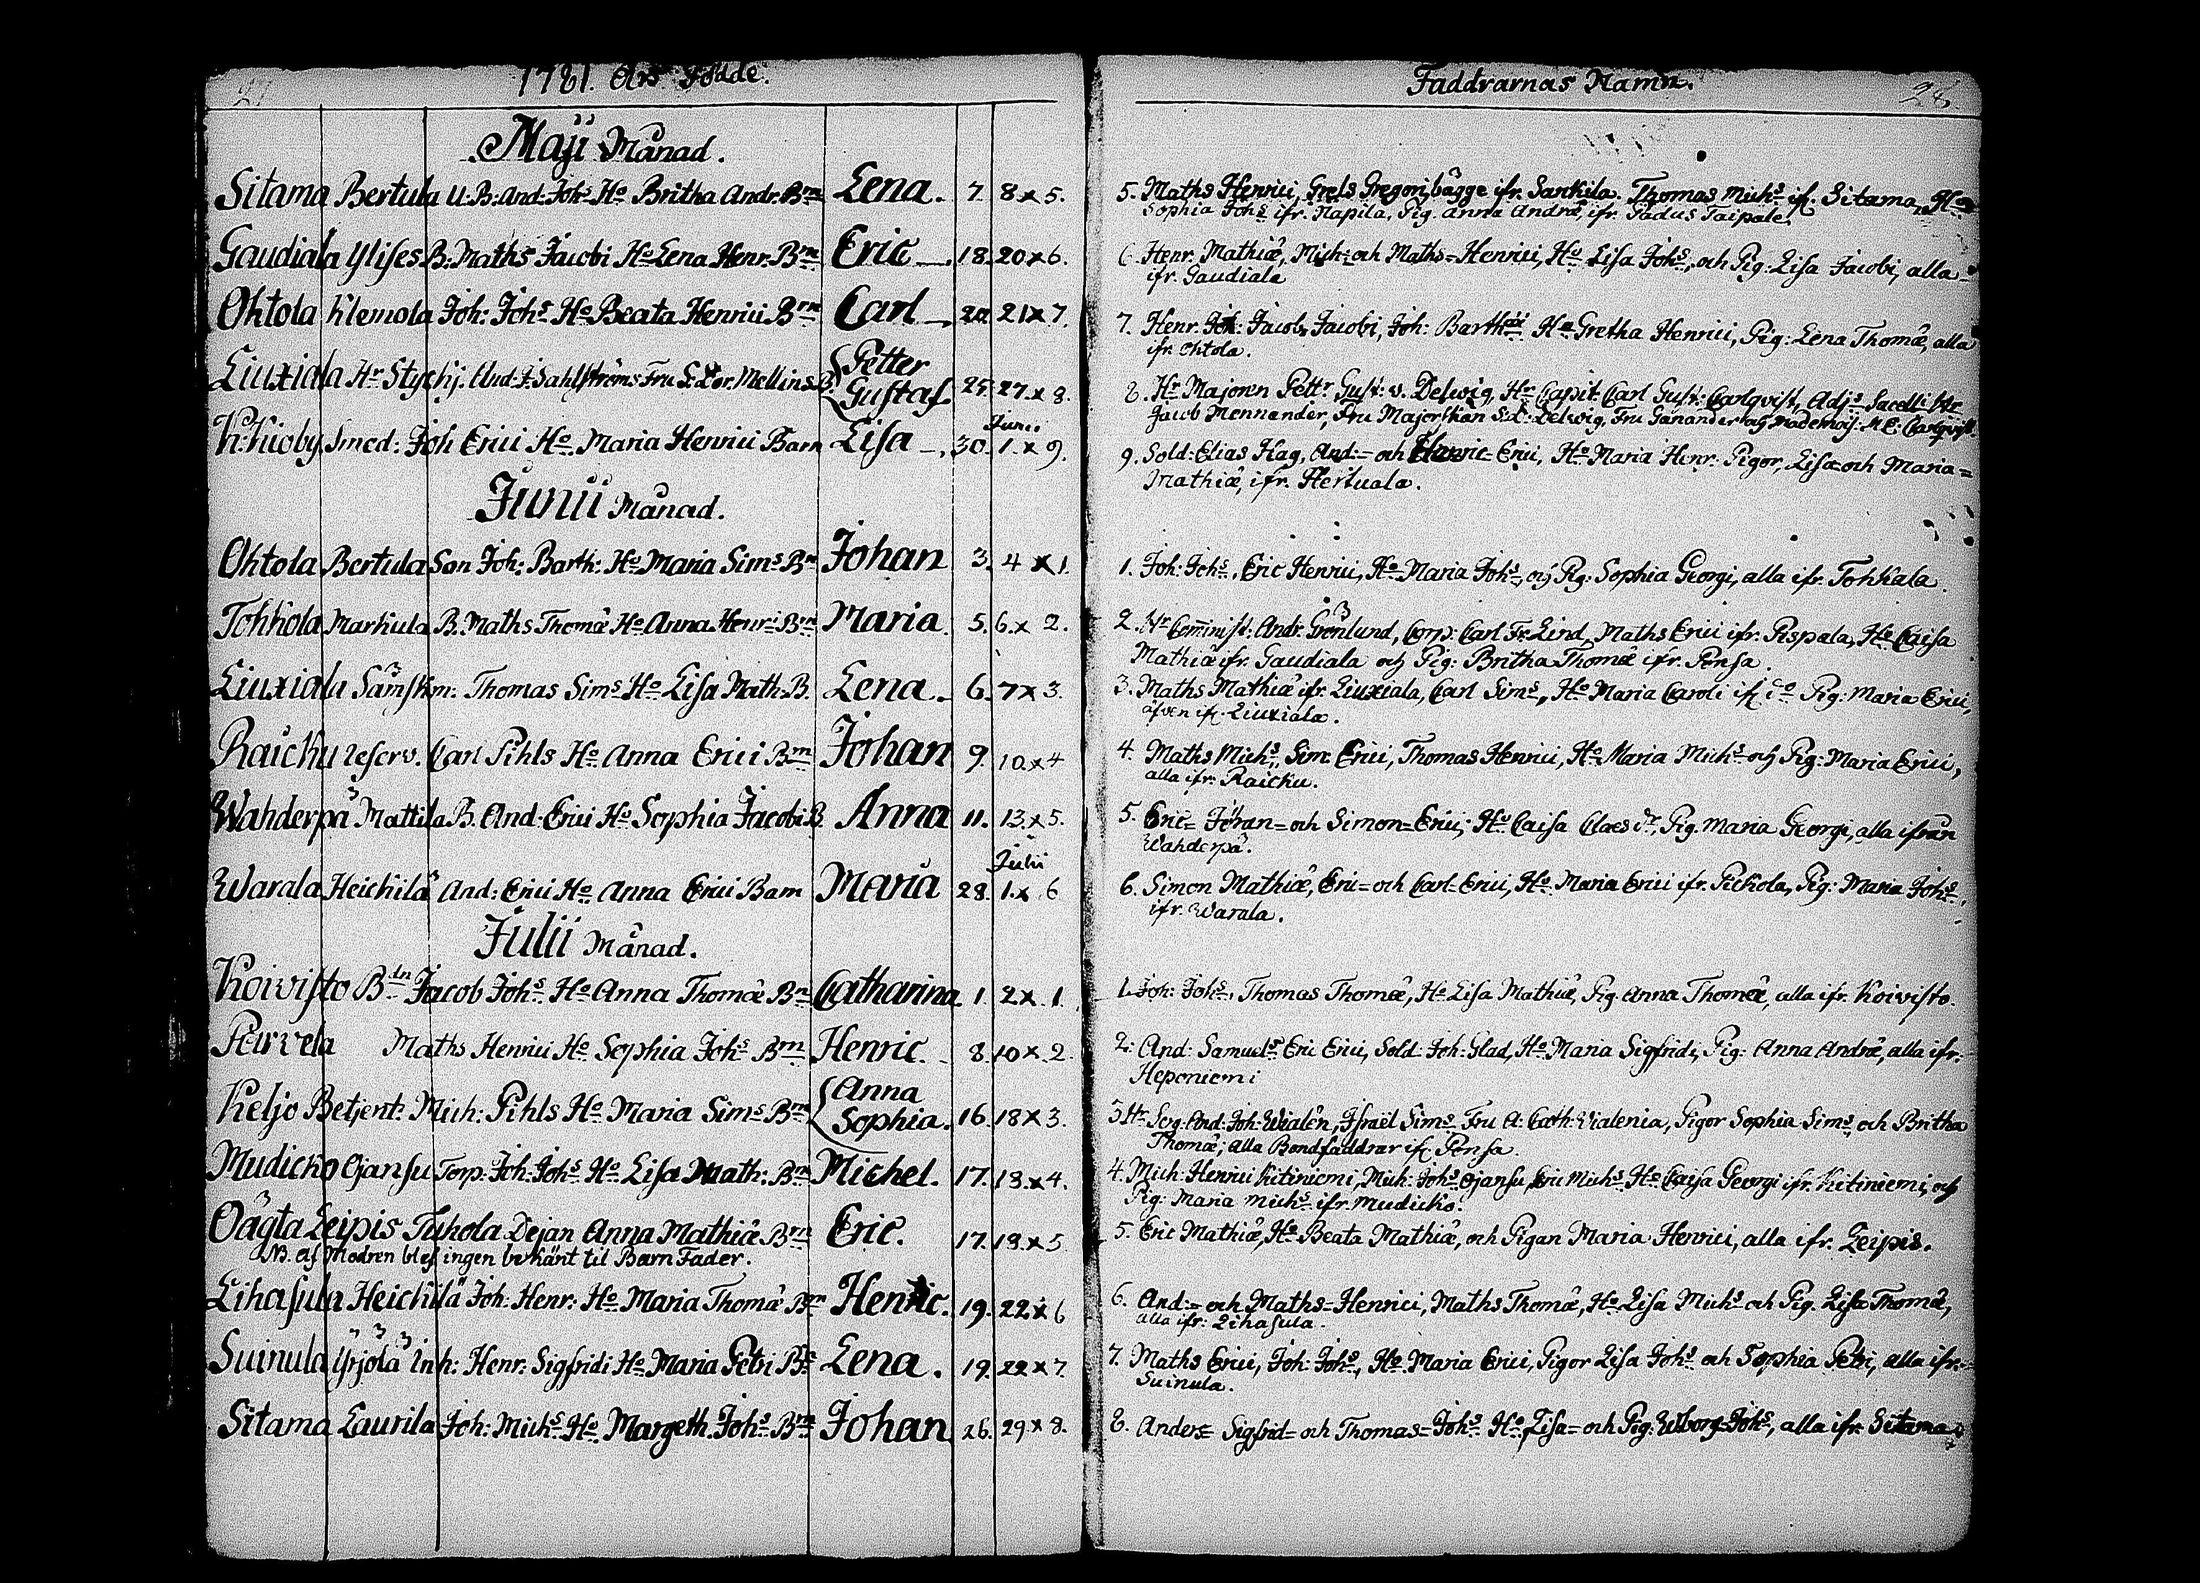 1781. Års Födde.
Maji Månad.
Sitama Bertula U.B: And: Johs. Ho. Britha Andr. Brn Lena. 7. 8 x 5.
Gaudiala Ylises B: Maths Jacobi Ho Lena Henr. Brn Eric 18. 20 x 6.
Ohtola Klemola Joh: Johs. Ho Beata Henrici Brn Carl 20 21 x 7.
Liuxiala Hr Styckj. And: J. Sahlströms Fru L: Lov. Mellins B. Petter Gustaf 25. 27. x 8.
Junii
K:Kioby Smed: Joh Erici Ho. Maria Henrici Barn Lisa 30. 1. x 9.
Junii Månad.
Ohtola Bertula Son Joh: Barth: Ho. Maria Sims. Bn Johan 3. 4 x 1.
Tohkola Markula B. Maths Thomæ Ho. Anna Henri Brn Maria. 5. 6. x 2.
Liuxiala Sämskm: Thomas Sims. Ho Lisa Math: B. Lena. 6. 7 x 3.
Raicku reserv. Carl Pihls Ho Anna Erici Brn Johan 9. 10. x 4
Wahderpä Mattila B. And: Erici Ho Sophia Jacobi B Anna 11. 13. x 5.
Julii
Warala Heickilä And: Erici Ho Anna Erici Barn Maria 28. 1. x 6
Julii Månad.
Koivisto Bdn Jacob Johs. Ho Anna Thomæ Bn Catharina 1. 2 x 1.
Pärvela Maths Henrici Ho Sophia Johs Brn Henric. 8. 10 x 2.
Keljo Betjent: Mich: Pihls Ho Maria Sims Brn Anna Sophia. 16. 18 x 3.
Mudicko Ojansu Torp: Joh: Johs Ho Lisa Math: Brn Michel. 17. 18. x 4.
Oägta Leipis Tuhola Dejan Anna Mathiæ Brn Eric. 17. 18. x 5.
NB. af Modren blef ingen bekänt til Barn Fader.
Lihasula Heickilä Joh: Henr: Ho Maria Thomæ Bn Henric. 19. 22 x 6
Suinula Yrjölä Inh: Henr: Sigfridi Ho Maria Petri Bn Lena. 19. 22 x 7.
Sitama Laurila Joh: Michs. Ho Margeth. Johs. Brn Johan 26. 29. x 8.
Faddrarnas Namn.
5. Maths Henrici, Grels Gregori, bägge ifr. Sankila. Thomas Michs. if. Sitama, Ho
Sophia Johs. ifr. Hapila, Pig. Anna Andræ, ifr. Padus Taipale.
6. Henr. Mathiæ, Mich= och Maths=Henrici, Ho Lisa Johs., och Pig: Lisa Jacobi, alla
ifr. Gaudiala
7. Henr. Joh: Jacob Jacobi, Joh: Barth Ho Gretha Henrici, Pig: Lena Thomæ, alla
ifr. Ohtola.
8. Hr Majoren Pettr. Gust: v. Delwig, Hr Capit: Carl Gust: Carlqvist, Adjs. Sacelli
Jacob Mennander, Fru Majorskan Delwig, Fru Ganander och Mademoij: M C: Carlqvist.
9. Sold: Elias Hag, And:= och Henric= Erici, Ho Maria Henr: Pigor, Lisa= och Maria=
Mathiæ, ifr. Hertuala.
1. Joh: Johs., Eric Henrici, Ho Maria Johs, och Pig: Sophia Georgi, alla ifr. Tohkala
2. Hr Comminist. Andr. Grönlund, Corp: Carl Fr. Lind, Maths Erici ifr. Pispala, Ho Caisa
Mathiæ ifr. Gaudiala och Pig: Britha Thomæ ifr. Pensa.
3. Maths Mathiæ ifr. Liuxiala, Carl Sims., Ho Maria Caroli if. do Pig: Maria Erici,
äfven if. Liuxiala.
4. Maths Michs., Sim: Erici, Thomas Henrici, Ho Maria Michs. och Pig: Maria Erici,
alla ifr. Raicku.
5. Eric= Johan= och Simon= Erici, Ho Caisa Claes dr, Pig. Maria Georgi, alla ifrån
Wahderpä.
6. Simon Mathiæ, Eric= och Carl= Erici, Ho Maria Erici ifr. Pickola, Pig: Maria Johs.
ifr. Warala.
1. Joh: Johs., Thomas Thomæ, Ho Lisa Mathiæ, Pig. Anna Thomæ, alla ifr. Koivisto.
2. And: Samuels. Eric Erici, Sold: Joh: Glad, Ho Maria Sigfridi, Pig: Anna Andræ, alla ifr.
Heponiemi
3. Hr Serg: And: Joh: Wialèn, Israël Sims. Fru A: Cath: Wialenia, Pigor Sophia Sims. och Britha
Thomæ; alla Bondfaddrar if. Pensa.
4. Mich: Henrici Kitiniemi, Mich: Johs. Ojansu, Eric Michs. Ho Caisa Georgi ifr. Kitiniemi, och
Pig: Maria Michs. ifr. Mudicko.
5. Eric Mathiæ, Ho Beata Mathiæ, och Pigan Maria Henrici, alla ifr. Leipis.
6. And:= och Maths= Henrici, Maths Thomæ, Ho Lisa Michs. och Pig. Lisa Thomæ,
alla ifr: Lihasula.
7. Maths Erici, Joh: Johs., Ho Maria Erici, Pigor Lisa Johs. och Sophia Petri, alla ifr.
Suinula.
8. Anders= Sigfrid= och Thomas= Johs. Ho Lisa= och Pig: Wborg= Johs., alla ifr. Sitama